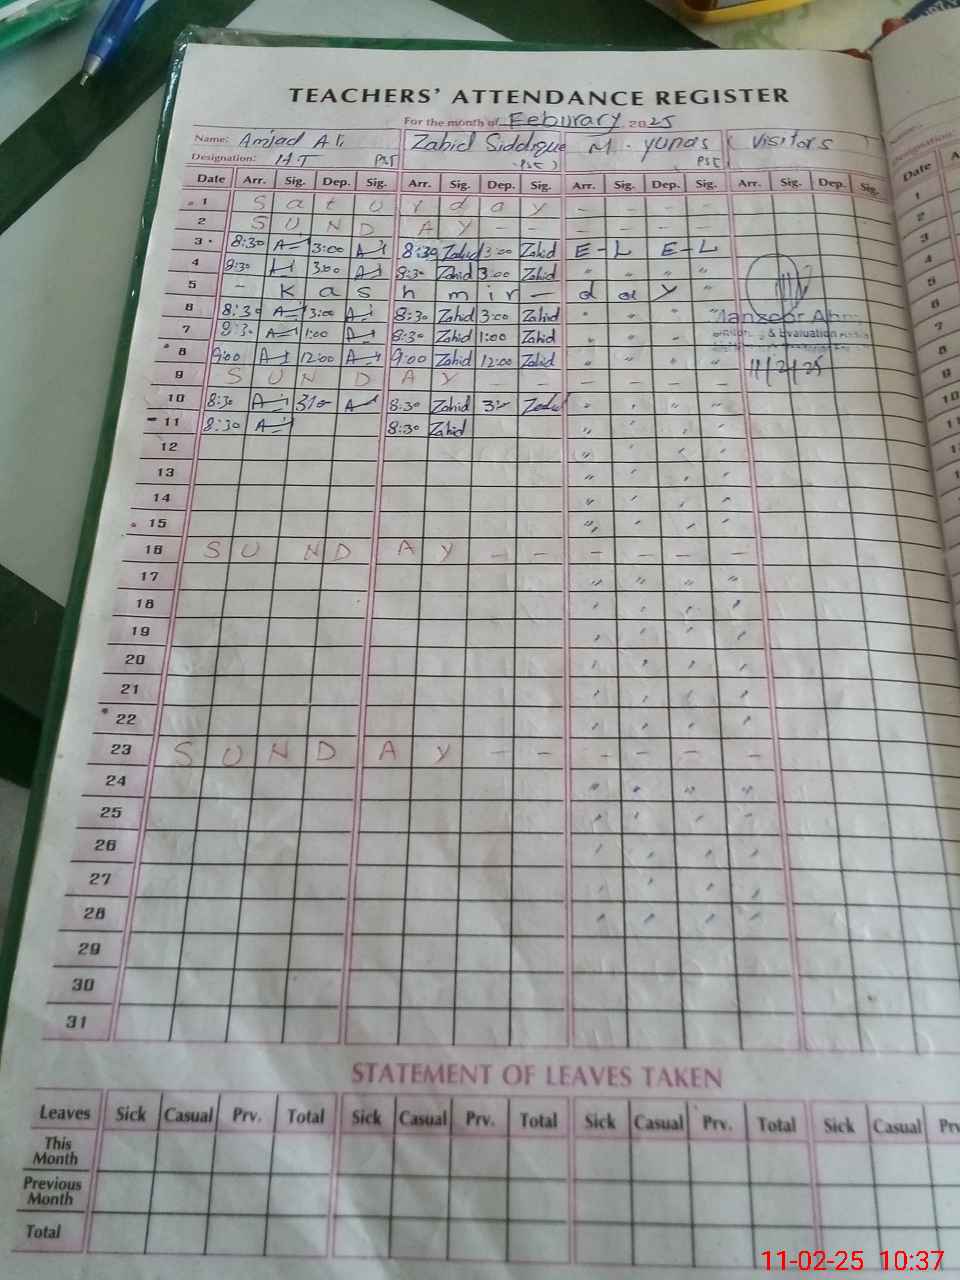 TEACHERS' ATTENDANCE REGISTER
For the month of Feburary 2025
Name: Amjad Ali Zahid Siddique M. yunas Visitors
Designation: HT PST PST PST
Date Arr. Sig. Dep. Sig. Arr. Sig. Dep. Sig. Arr. Sig. Dep. Sig. Arr. Sig. Dep. Sig.
1 S a t u r d a y - - - -
2 S U N D A Y - - - - - -
3 8:30 3:00 8:30 Zahid 3:00 Zahid E - L E - L
4 8:30 3:00 8:30 Zahid 3:00 Zahid " " " "
5 - K a s h m i r - d a y "
6 8:30 3:00 8:30 Zahid 3:00 Zahid " " " " Manzoor Ahm
7 8:30 1:00 8:30 Zahid 1:00 Zahid " " " " & Evaluation
8 9:00 12:00 9:00 Zahid 12:00 Zahid " " " "
9 S U N D A Y - - - - - - 11/2/25
10 8:30 8:30 Zahid Zahid " " " "
11 8:30 8:30 Zahid " " " "
12 " " " "
13 " " " "
14 " " " "
15 " " " "
16 S U N D A Y - - - - - -
17 " " " "
18 " " " "
19 " " " "
20 " " " "
21 " " " "
22 " " " "
23 S U N D A Y - - - - - -
24 " " " "
25 " " " "
26 " " " "
27 " " " "
28 " " " "
29
30
31
STATEMENT OF LEAVES TAKEN
Leaves Sick Casual Prv. Total Sick Casual Prv. Total Sick Casual Prv. Total Sick Casual Prv
This Month
Previous Month
Total
11-02-25 10:37